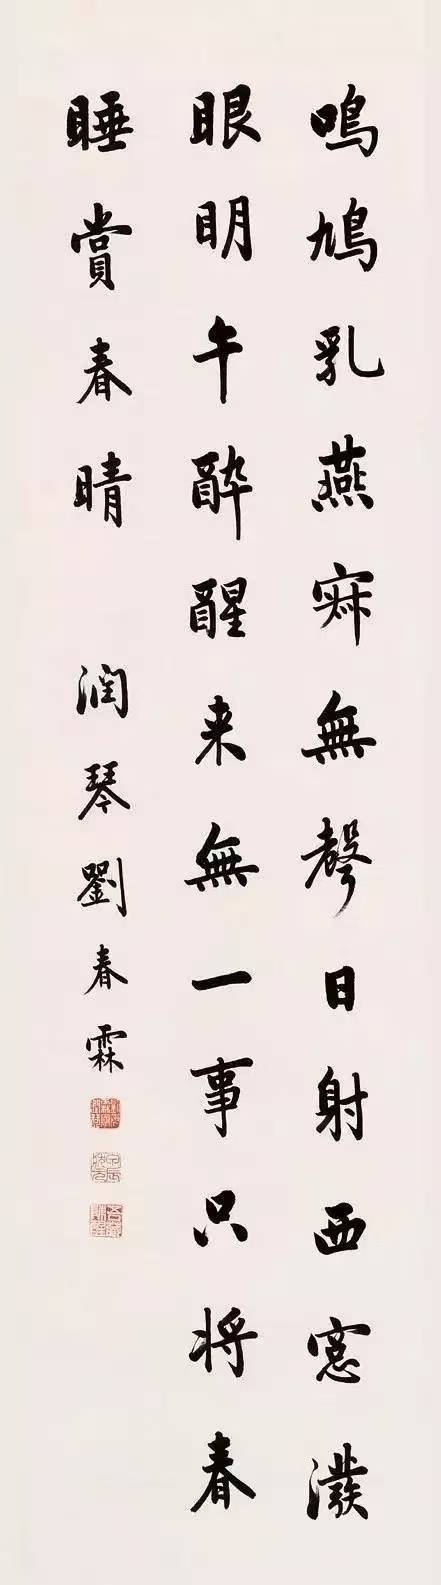 鳴鳩乳燕寂無聲日射西窻潑
眼明午醉醒来無一事只將春
睡賞春晴
潤琴劉春霖